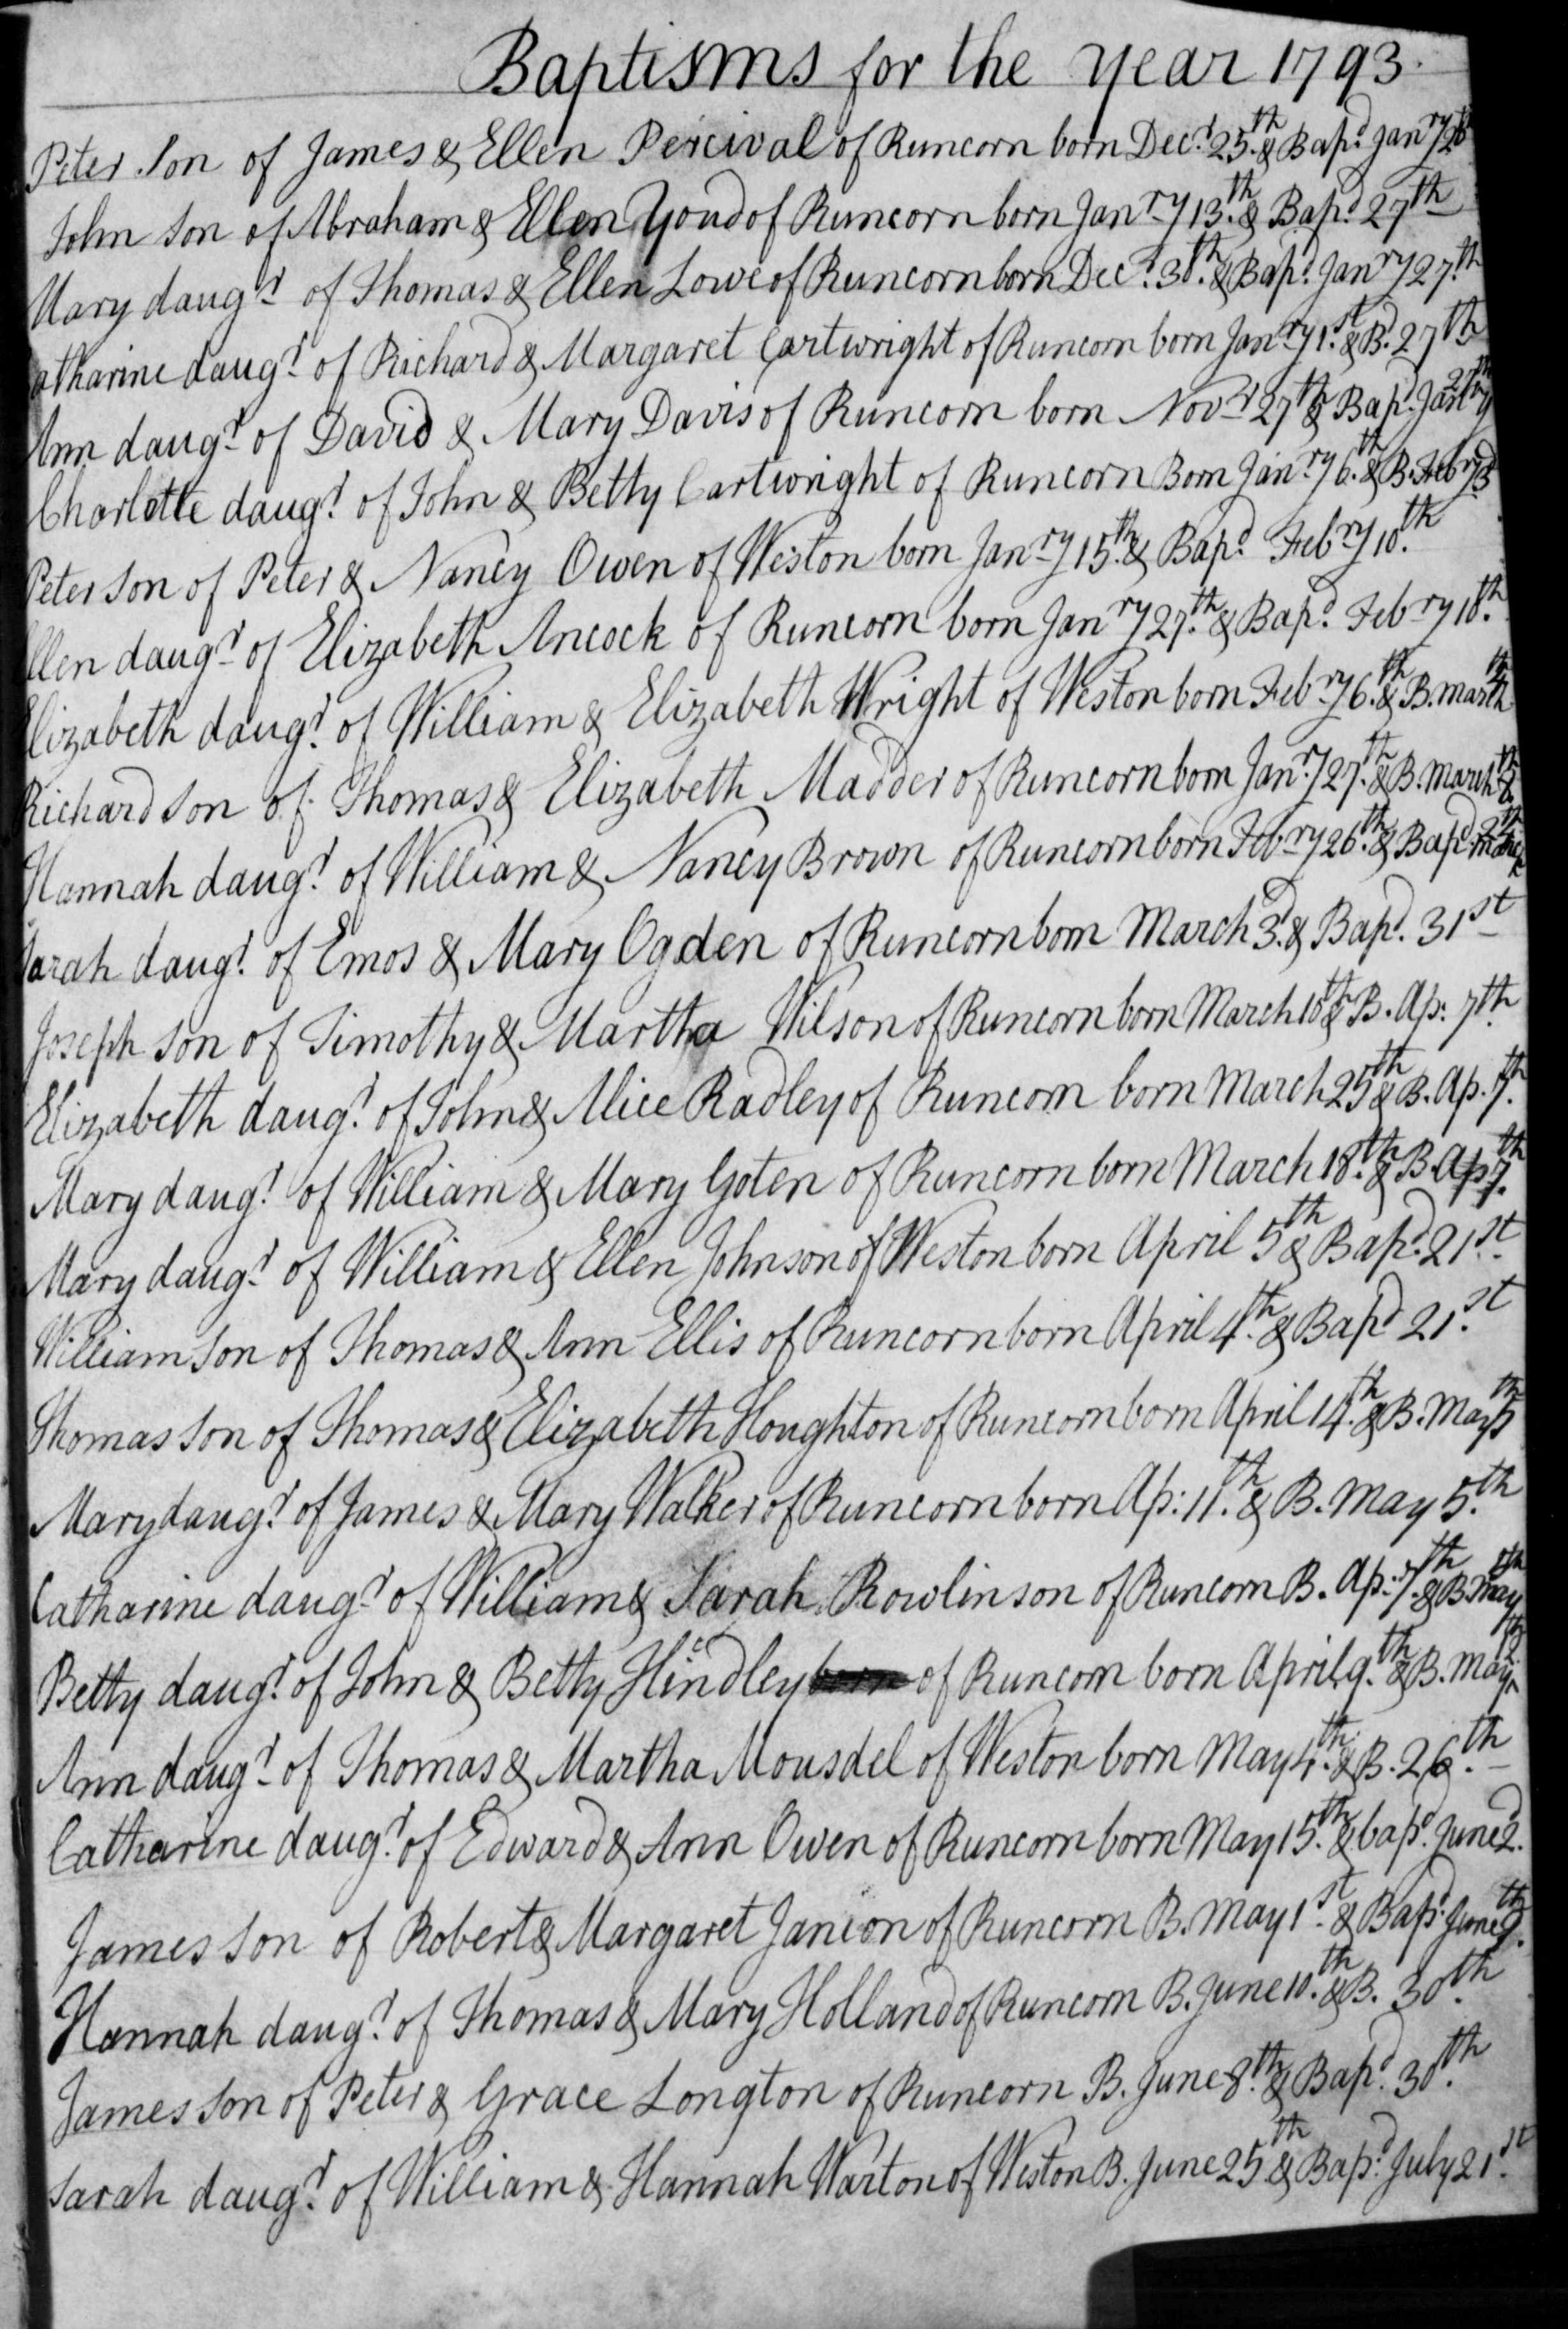 Baptisms for the Year 1793.
Peter son of James & Ellen Percival of Runcorn born Decr. 25th & Bapd. Janry
John son of Abraham & Ellen Youd of Runcorn born Janry 13th & Bapd. 27th
Mary daugr. of Thomas & Ellen Lowe of Runcorn born Decr. 30th & Bapd. Janry 27th
atharine daugr. of Richard & Margaret Cartwright of Runcorn born Janry 1st & B. 27th
Ann daugr. of David & Mary Davis of Runcorn born Novr. 27th & Bapd. Janry 27th
Charlotte daugr. of John & Betty Cartwright of Runcorn Born Janry 6th & B. Febry 3d
Peter son of Peter & Nancy Owen of Weston born Janry 15th & Bapd. Febry 10th
Ellen daugr. of Elizabeth Ancock of Runcorn born Janry 27th & Bapd. Febry 18th
Elizabeth daugr. of William & Elizabeth Wright of Weston born Febry 6th & B. March
Richard son of Thomas & Elizabeth Madder of Runcorn born Janry 27th & B. March
Hannah daugr. of William & Nancy Brown of Runcorn born Febry 26th & Bapd. March
Sarah daugr. of Emos & Mary Ogden of Runcorn born March 3d & Bapd. 31st
Joseph son of Timothy & Martha Wilson of Runcorn born March 10th & B. Ap: 7th
Elizabeth daugr. of John & Alice Radley of Runcorn born March 25th & B. Ap. 7th
Mary daugr. of William & Mary Goten of Runcorn born March 18th & B. Ap 7th
Mary daugr. of William & Ellen Johnson of Weston born April 5th & Bapd. 21st
William son of Thomas & Ann Ellis of Runcorn born April 4th & Bapd 21st
Thomas son of Thomas & Elizabeth Houghton of Runcorn born April 14th & B. May 5th
Mary daugr. of James & Mary Walker of Runcorn born Ap: 11th & B. May 5th
Catharine daugr. of William & Sarah Rowlinson of Runcorn B. Ap: 7th & B. May
Betty daugr. of John & Betty Hindley of Runcorn born April 9th & B. May
Ann daugr. of Thomas & Martha Mousdel of Weston born May 4th & B. 26th
Catharine daugr. of Edward & Ann Owen of Runcorn born May 15th & bapd. June 2d
James son of Robert & Margaret Janion of Runcorn B. May 1st & Bapd. June 9th
Hannah daugr. of Thomas & Mary Holland of Runcorn B. June 10th & B. 30th
James son of Peter & Grace Longton of Runcorn B. June 8th & Bapd. 30th
Sarah daugr. of William & Hannah Warton of Weston B. June 25th & Bapd. July 21st